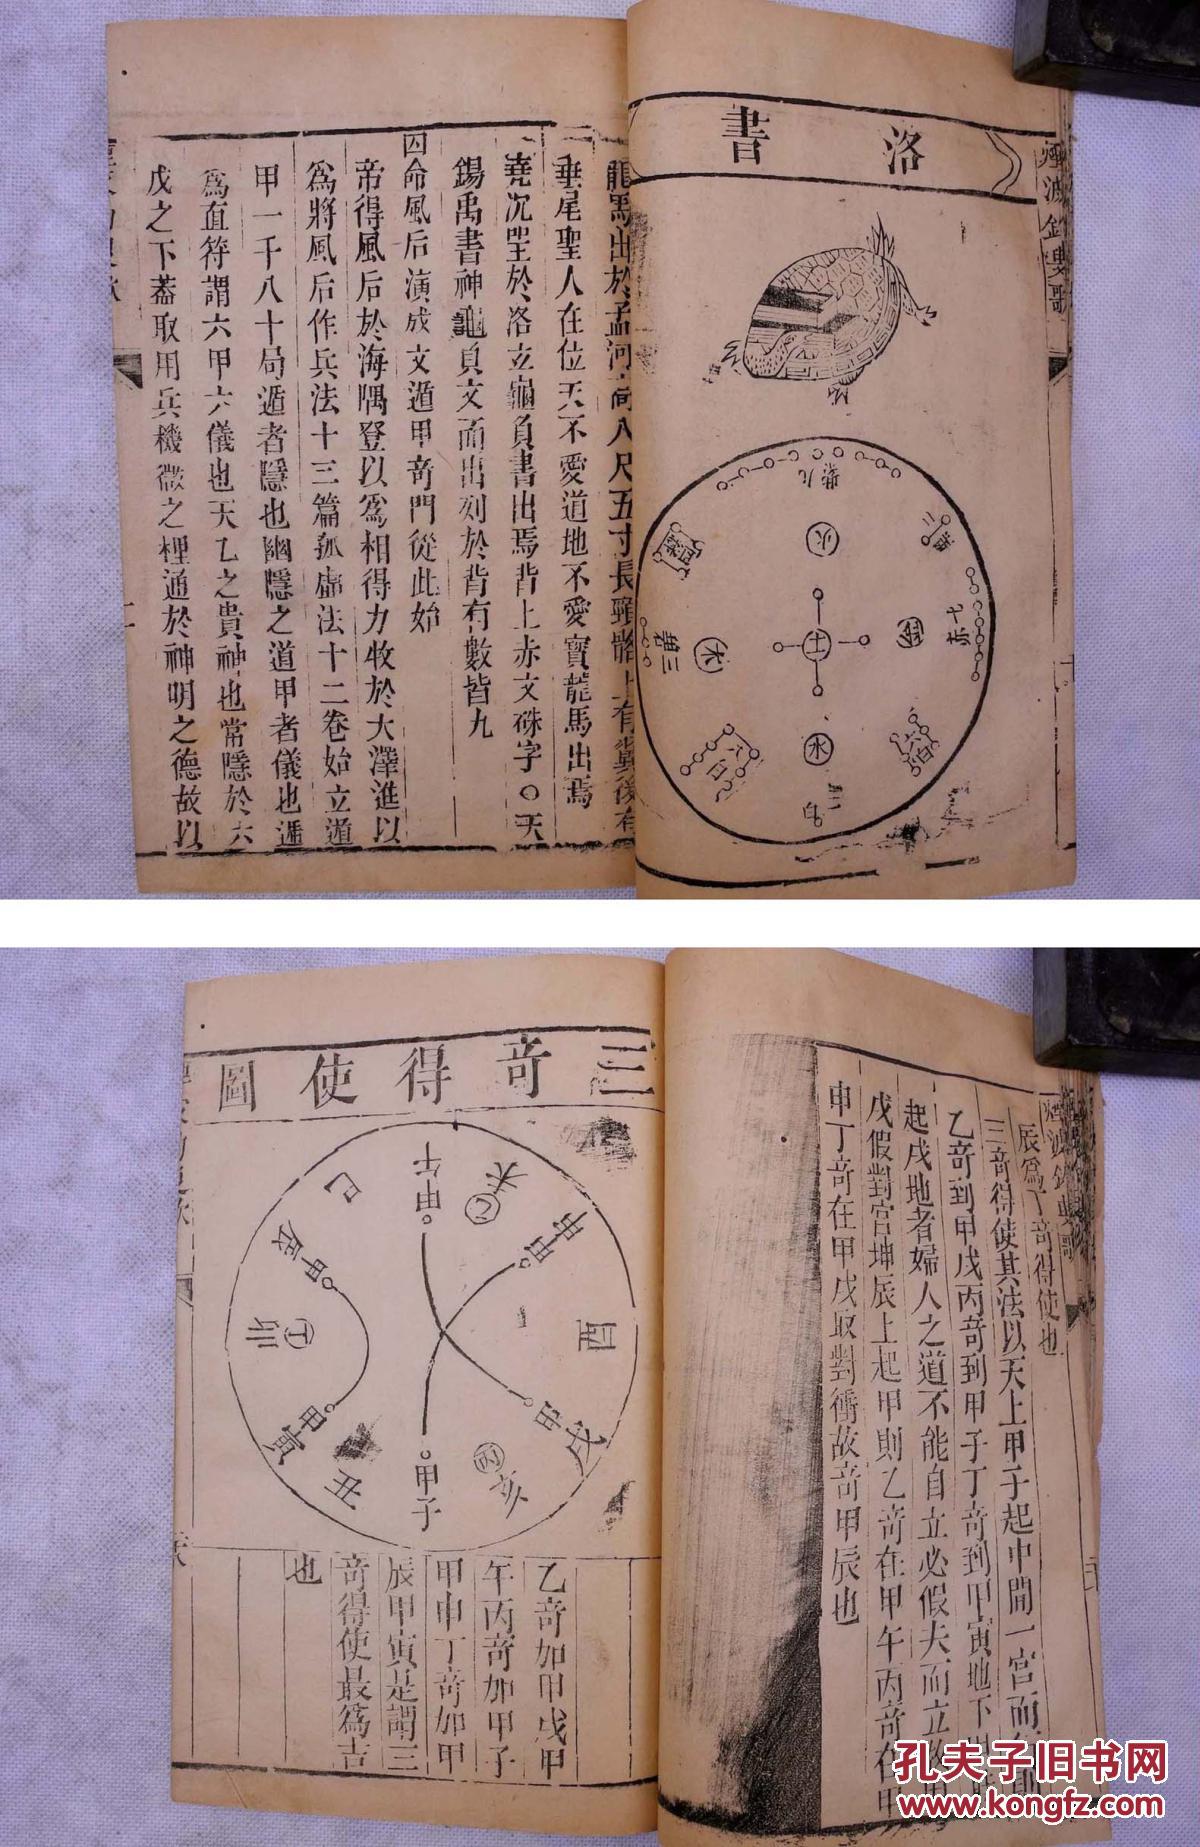 洛書
紫九
火
土
七赤
三碧
木
水
六白
龍馬出於孟河高八尺五寸長頸骼上有翼後有
垂尾聖人在位天不愛道地不愛寶龍馬出焉
堯沉璧於洛立龜負書出焉背上赤文硃字○天
錫禹書神龜負文而出列於背有數皆九
因命風后演成文遁甲竒門從此始
帝得風后於海隅登以爲相得力牧於大澤進以
爲將風后作兵法十三篇孤虛法十二卷始立遁
甲一千八十局遁者隱也幽隱之道甲者儀也遁
爲直符謂六甲六儀也天乙之貴神也常隱於六
戊之下葢取用兵機微之理通於神明之德故以
辰爲丁竒得使也
三竒得使其法以天上甲子起中間一宫而
乙竒到甲戌丙竒到甲子丁竒到甲寅地下
起戌地者婦人之道不能自立必假夫而立
戊假對宫坤辰上起甲則乙竒在甲午丙竒在甲
申丁竒在甲戌取對衝故竒甲辰也
三竒得使圖
甲午
乙未
甲申
酉
甲戌
丙亥
甲子
丑
甲寅
丁卯
甲辰
巳
乙竒加甲戌甲
午丙竒加甲子
甲申丁竒加甲
辰甲寅是謂三
竒得使最爲吉
也
孔夫子旧书网
www.kongfz.com